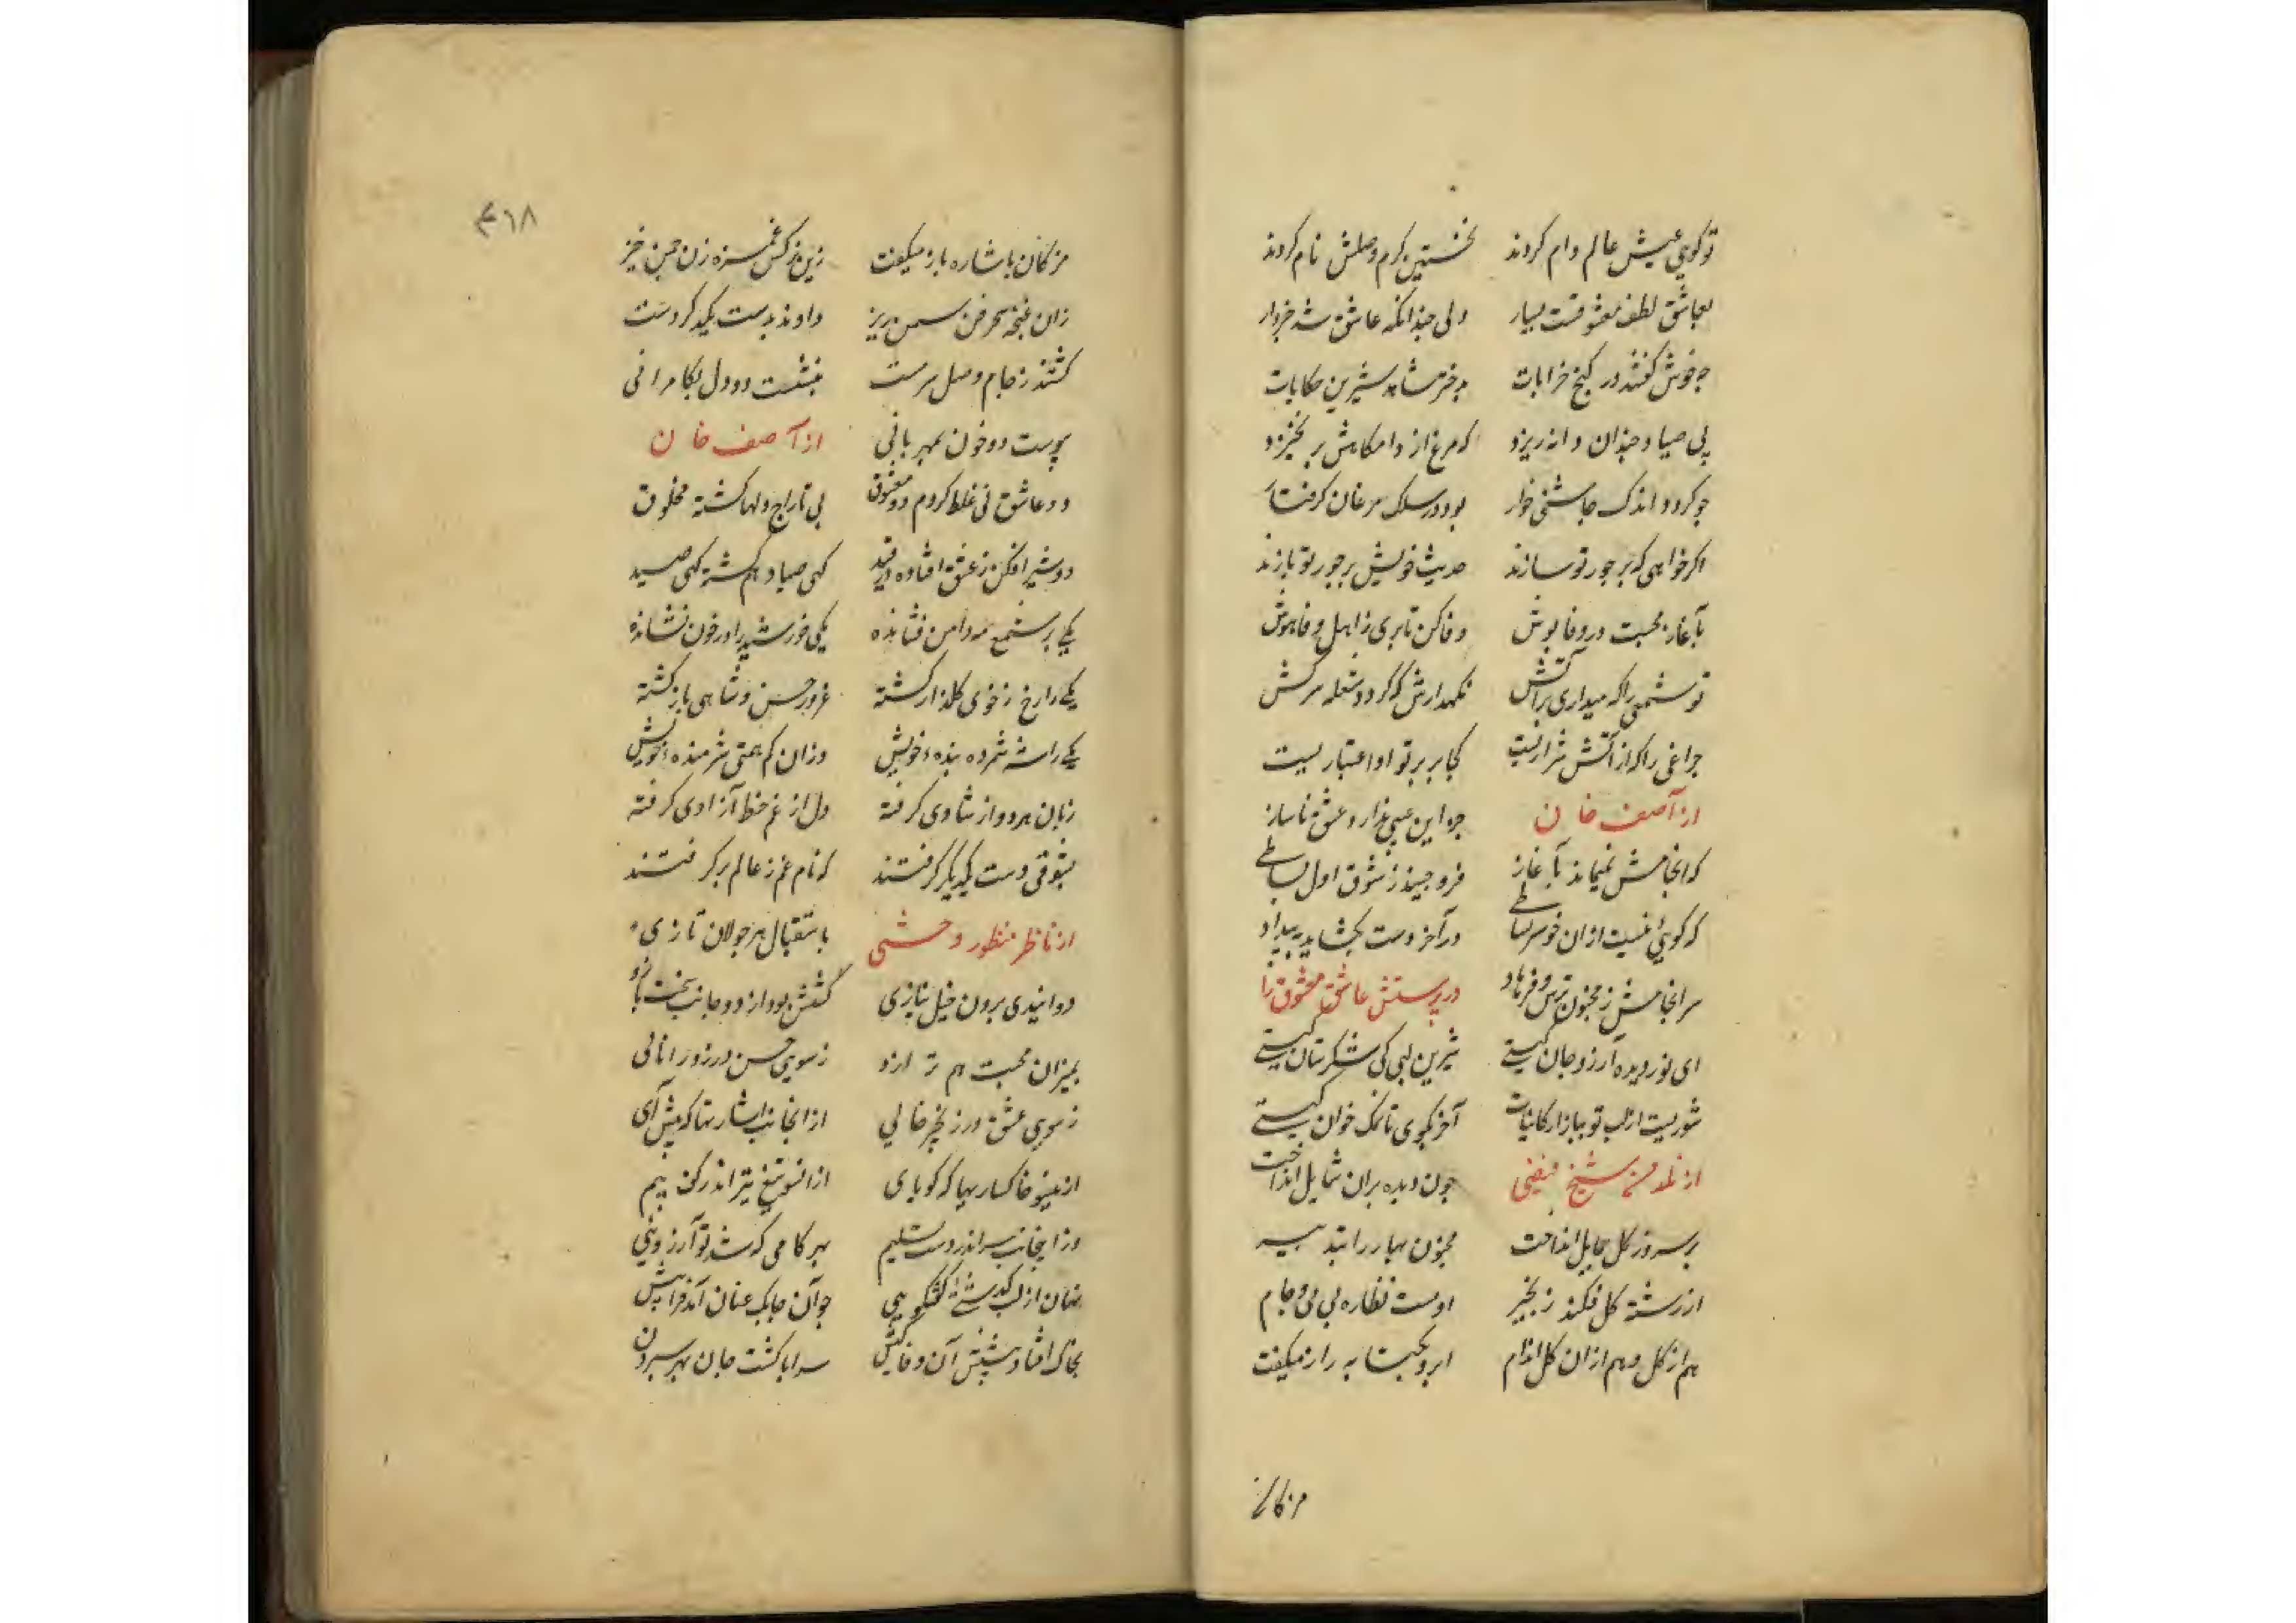 تو کویی عیش عالم وام کردند نخستین کرم وصلش نام کردند
بعاشق لطف معشوقست بسیار ولی چندانکه عاشق شد خبردار
چه خوش کفتند در کنج خرابات شیرین حکایات
پی صیاد چندان دانه ریزد که مرغ از دامکاهش بر نخیزد
چو کردد اندک چاشنی خوار بود در سلک مرغان کرفتار
اکر خواهی که بر جور تو سازند حدیث خویش بر جور تو بازند
بآغاز محبت در وفا بوش وفا کن تا بری ز اهل وفا هوش
تو شمعی را که میداری بر آتش نکهدارش که کردد شعله سرکش
چراغی را که از آتش شراریست کجا بر پرتو او اعتباریست
از آصف خان چه این عشق ناساز
که انجامش نمیماند بآغاز فرو چیند ز شوق اول بساطی
که کویی نیست از ان خوشتر نشاطی در آخر دست بکشاید به بیداد
سرانجامش ز مجنون پرس و فرهاد در پرستش عاشق معشوق را
ای نور دیده آرزو جان کیستی شیرین لبی کی شکرستان کیستی
شوریست از لب تو ببازار کاینات آخر بکوی تا نمک خوان کیستی
از نلدمن شیخ فیضی چون دیده بران شمایل انداخت
بر سرو ز کل حمایل انداخت مجنون بهار را بتدبیر
از رشته کل فکند زنجیر او مست نظاره بی می و جام
هم از کل و هم از ان کل اندام ابرو بحبت به راز میکفت
مژکان
۳۶۸
مژکان باشاره باز میکفت زین نرکس غمزه زن چمن خیز
زان غنچه سحر فن سمن ریز دادند بدست یکدکر دست
کشتند ز جام وصل سرمست بنشست دو دل بکامرانی
پیوست دو خون بمهربانی از آصف خان
دو عاشق نی غلط کردم دو معشوق پی تاراج دلها کشته مخلوق
دو شیر افکن ز عشق افتاده در قید کهی صیاد هم کشته کهی صید
یکی بر شمع مه دامن فشانده یکی خورشید را در خون نشانده
یکی را رخ ز خوی کلزار کشته غرور حسن و شاهی باز کشته
یکی را شه شمرده بنده خویش وزان کم همتی شرمنده خویش
زبان هر دو از شادی کرفته دل از غم خط آزادی کرفته
بشوقی دست یکدیکر کرفتند که نام غم ز عالم بر کرفتند
از ناظر منظور وحشی باستقبال هر جولان تازی
دوانیدی برون خیل نیازی کشش بود از دو جانب سخت بازو
بمیزان محبت هم ترازو ز سوی حسن در زور انائی
ز سوی عشق در زنجیر خائی از انجانب اشارتها که پیش آی
ازینسو خاکساریها که کو پای ازانسو تیغ تیز اندر کف بیم
وز اینجانب سر اندر دست تسلیم بهر کامی که شد نو آرزویی
نهان از لب کذشتی کفتکویی چو آن چابک عنان آمد فرا پیش
بخاک افتاد پیشش آن وفا کیش سراپا کشت جان بهر سپردن